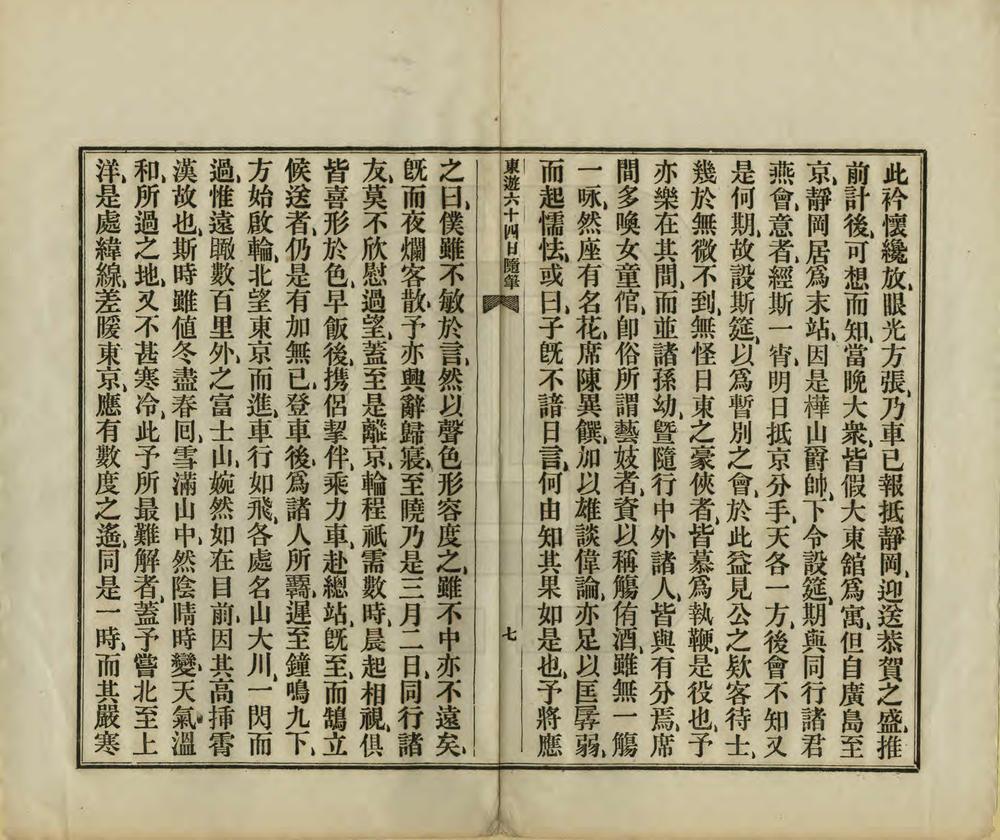 此衿懷纔放、眼光方張、乃車已報抵靜岡、迎送恭賀之盛、推
前計後、可想而知、當晚大衆、皆假大東舘爲寓、但自廣島至
京、靜岡居爲末站、因是樺山爵帥、下令設筵、期與同行諸君
燕會、意者、經斯一宵、明日抵京分手、天各一方、後會不知又
是何期、故設斯筵、以爲暫別之會、於此益見公之欵客待士、
幾於無微不到、無怪日東之豪俠者、皆慕爲執鞭、是役也、予
亦樂在其間、而並諸孫幼、曁隨行中外諸人、皆與有分焉、席
間多喚女童倌、卽俗所謂藝妓者、資以稱觴侑酒、雖無一觴
一咏、然座有名花、席陳異饌、加以雄談偉論、亦足以匡孱弱、
而起懦怯、或曰、子旣不諳日言、何由知其果如是也、予將應
東遊六十四日隨筆
七
之曰、僕雖不敏於言、然以聲色形容度之、雖不中亦不遠矣、
旣而夜爛客散、予亦興辭歸寢、至曉乃是三月二日、同行諸
友、莫不欣慰過望、蓋至是離京、輪程祇需數時、晨起相視、俱
皆喜形於色、早飯後、携侶挈伴、乘力車、赴總站、旣至、而鵠立
候送者、仍是有加無已、登車後、爲諸人所羈、遲至鐘鳴九下、
方始啟輪、北望東京而進、車行如飛、各處名山大川、一閃而
過、惟遠瞰數百里外、之富士山、婉然如在目前、因其高揷霄
漢故也、斯時雖値冬盡春囘、雪滿山中、然陰晴時變、天氣溫
和、所過之地、又不甚寒冷、此予所最難解者、蓋予嘗北至上
洋、是處緯線、差暖東京、應有數度之遙、同是一時、而其嚴寒